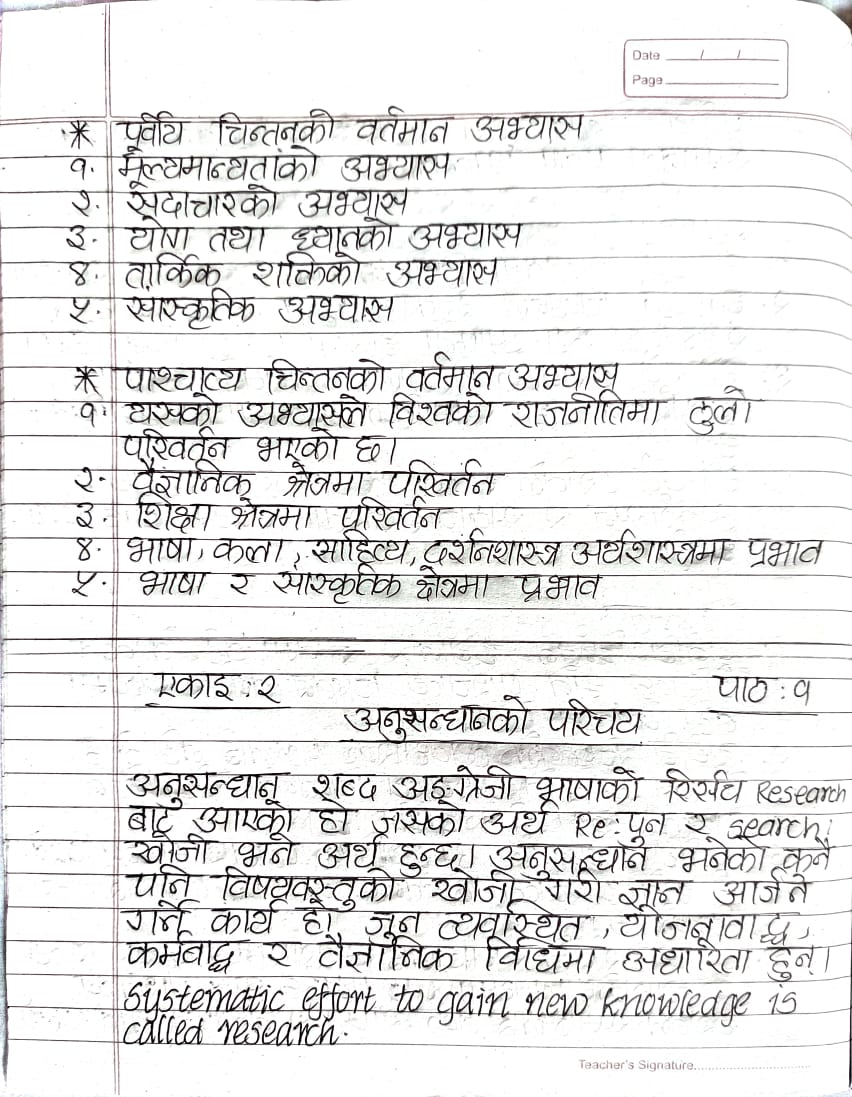 Date / /
Page
* पूर्वीय चिन्तनको वर्तमान अभ्यास
१. मूल्यमान्यताको अभ्यास
२. सदाचारको अभ्यास
३. योग तथा ध्यानको अभ्यास
४. तार्किक शक्तिको अभ्यास
५. सांस्कृतिक अभ्यास
* पाश्चात्य चिन्तनको वर्तमान अभ्यास
१. यसको अभ्यासले विश्वको राजनीतिमा ठुलो
परिवर्तन भएको छ।
२. वैज्ञानिक श्रेत्रमा परिवर्तन
३. शिक्षा श्रेत्रमा परिवर्तन
४. भाषा, कला, साहित्य, दर्शनशास्त्र अर्थशास्त्रमा प्रभाव
५. भाषा र सांस्कृतिक क्षेत्रमा प्रभाव
एकाइ : २ पाठ : १
अनुसन्धानको परिचय
अनुसन्धान शब्द अङ्ग्रेजी भाषाको रिर्सच Research
बाट आएको हो जसको अर्थ Re: पुन र search:
खोजी भने अर्थ हुन्छ। अनुसन्धान भनेको कुनै
पनि विषयवस्तुको खोजी गरी ज्ञान आर्जन
गर्ने कार्य हो जुन व्यवस्थित, योजनावाद्ध,
कर्मबाद्ध र वैज्ञानिक विधिमा अधारिता हुन।
systematic effort to gain new knowledge is
called research.
Teacher's Signature